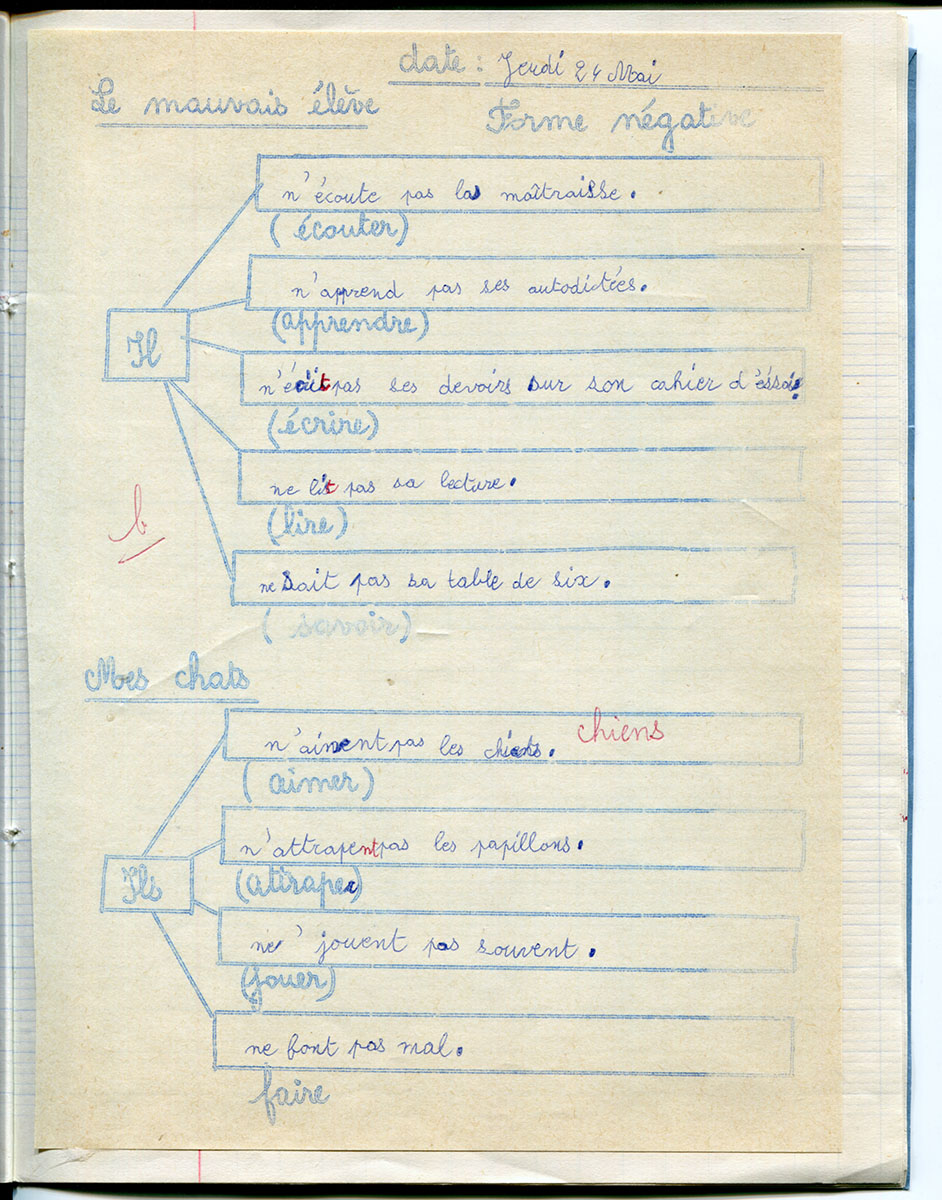 date : Jeudi 24 Mai
Le mauvais élève
Forme négative
n'écoute pas la maîtraisse.
(écouter)
n'apprend pas ses autodictées.
(apprendre)
Il
n'écrit pas ses devoirs sur son cahier d'éssai.
(écrire)
ne lit pas sa lecture.
(lire)
b
ne sait pas sa table de six.
(savoir)
Mes chats
n'aiment pas les chiens. chiens
(aimer)
n'attrapent pas les papillons.
Ils
(attraper)
ne jouent pas souvent.
(jouer)
ne font pas mal.
faire